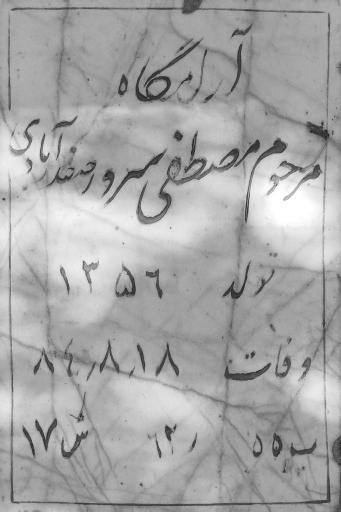 آرامگاه
مرحوم مصطفی سرور صفدرآبادی
تولد ۱۳۵۶
وفات ۸۴٫۸٫۱۸
ب ۵۵ ر ۶۳ ش ۱۷